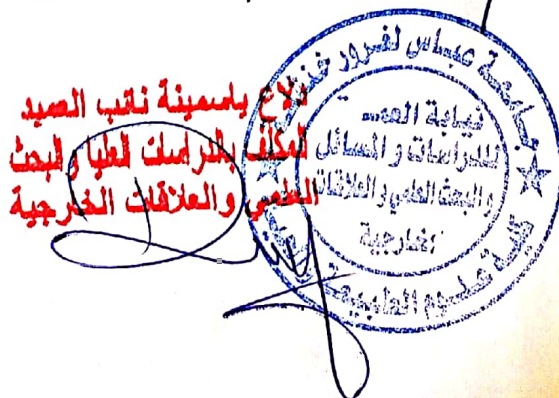 ياسمينة نائب العميد
المكلف بالدراسات العليا والبحث
العلمي والعلاقات الخارجية
جامعة عباس لغرور خنشلة
نيابة العمـ
للدراسات و المسائل
والبحث العلمي و العلاقات
الخارجية
كلية علوم الطبيعة